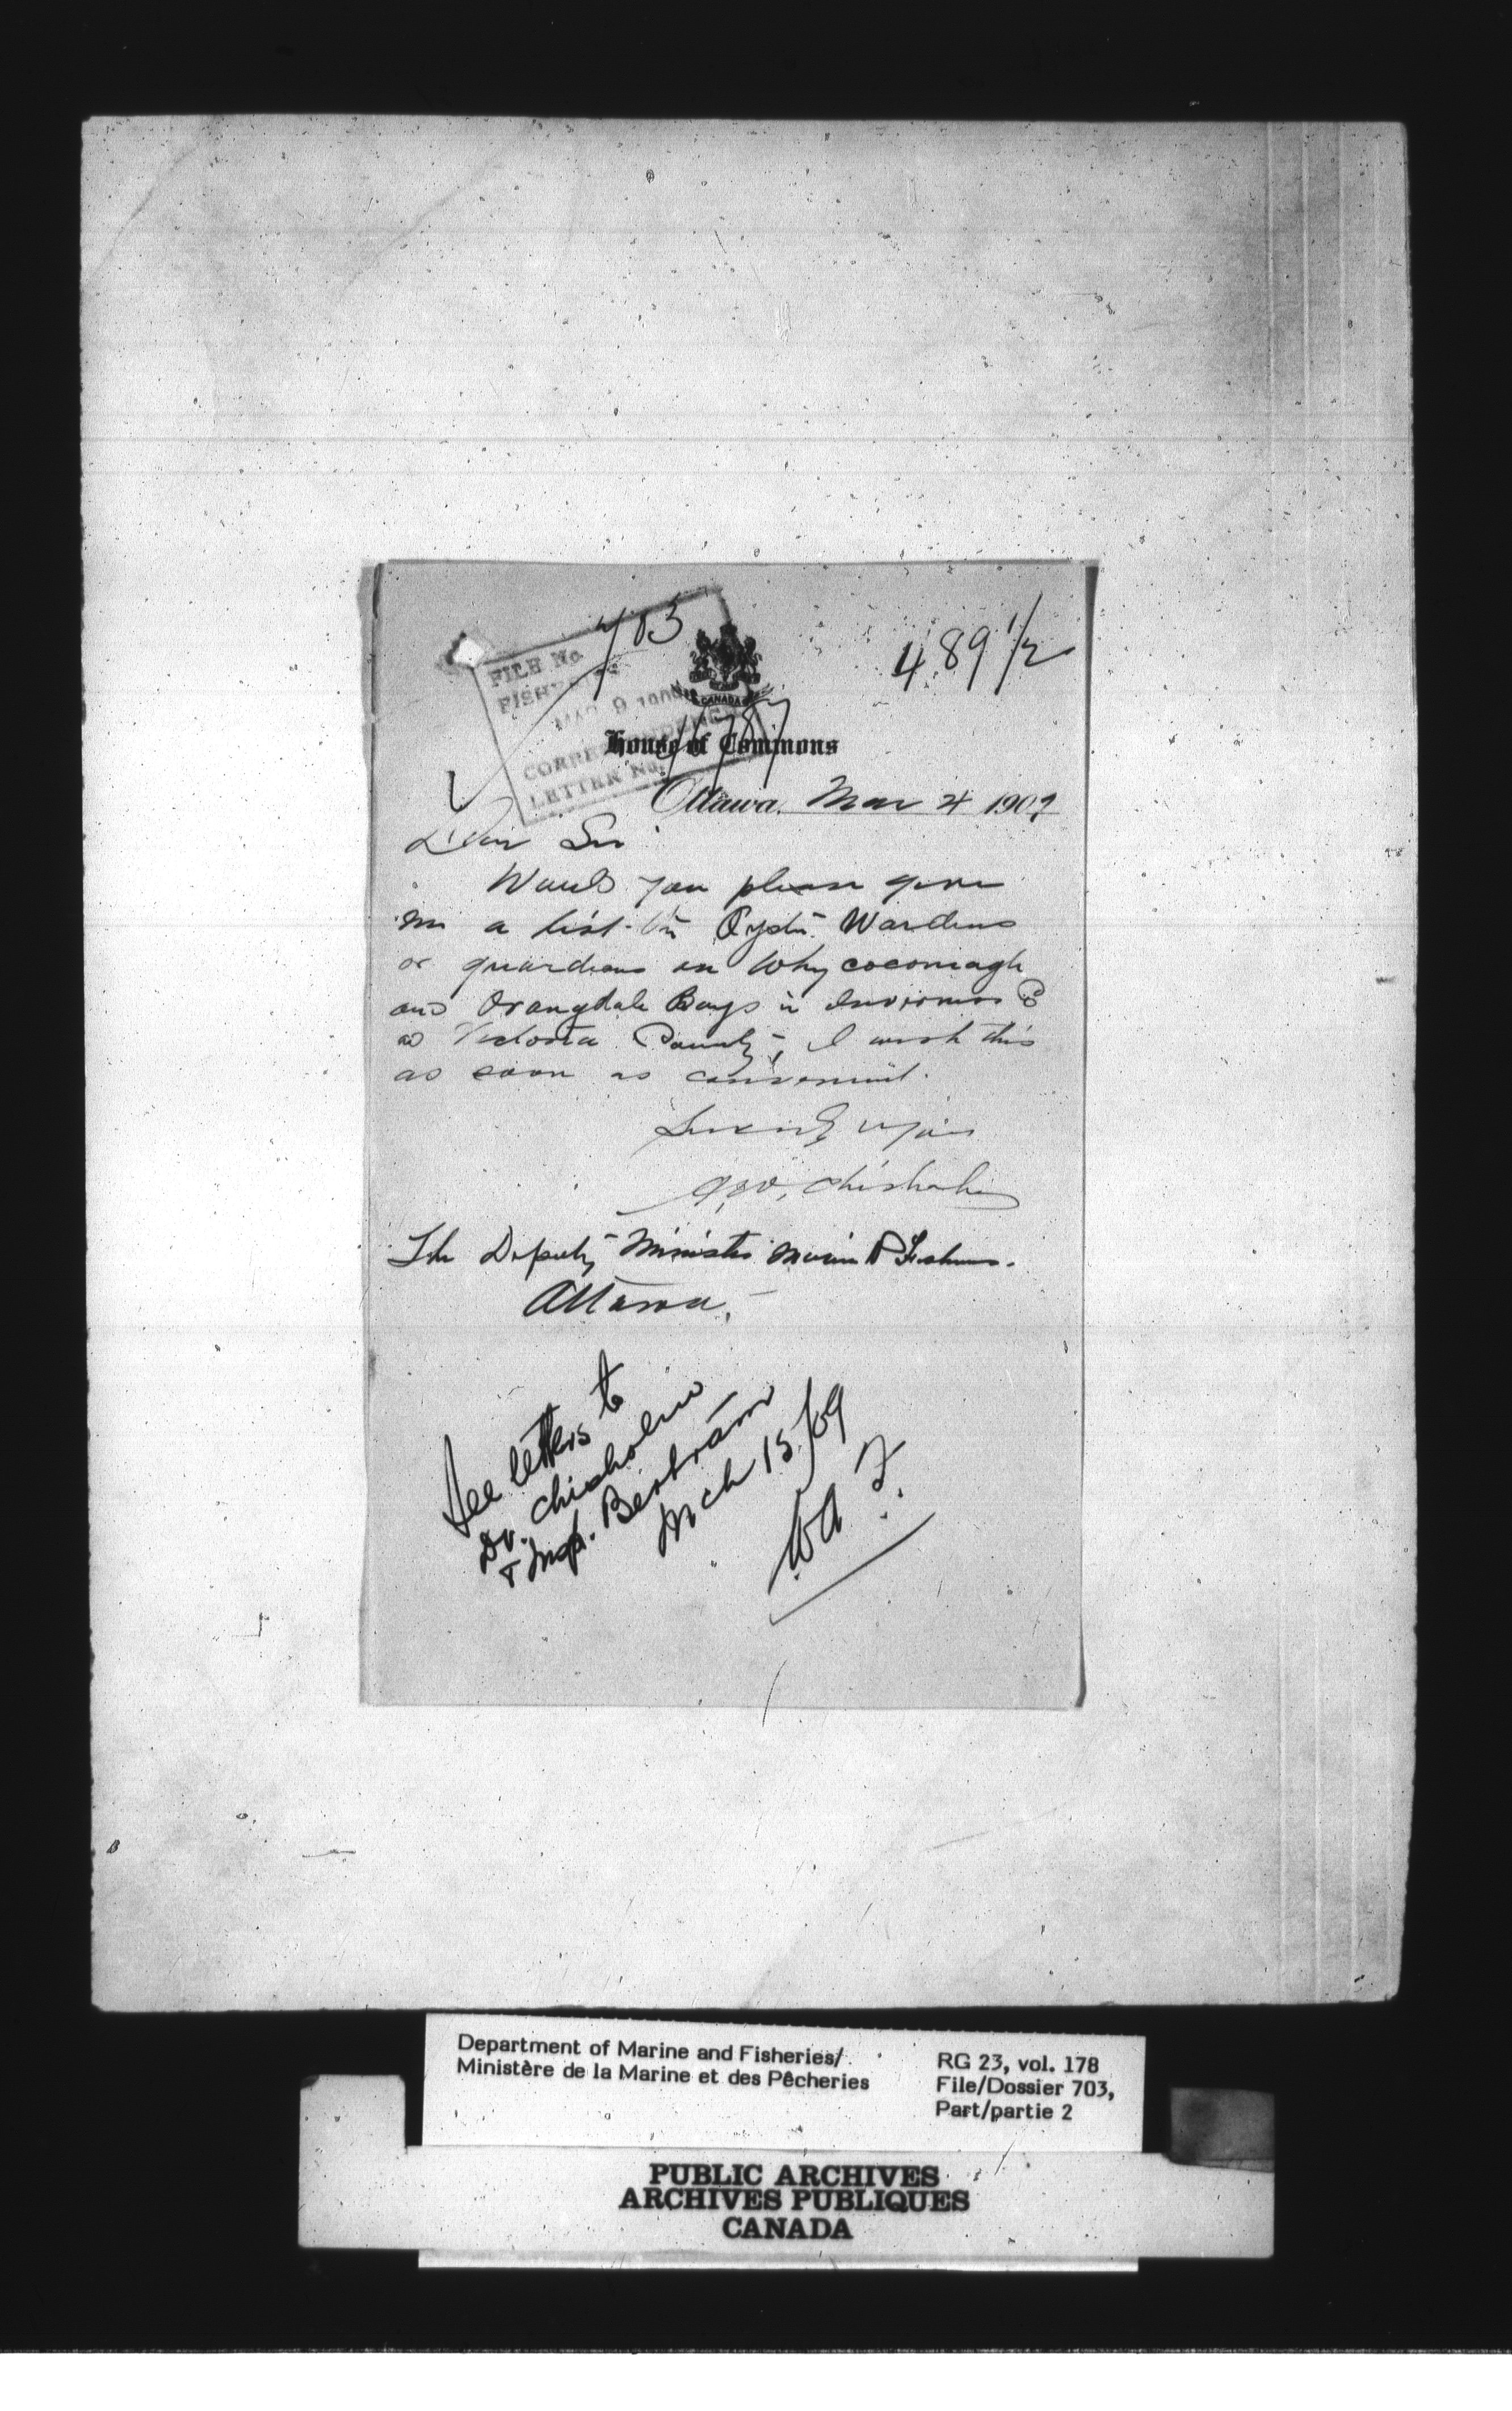 703
489 1/2
FILE No.
FISHERIES
MAR 9 1909
CORRESPONDENCE
LETTER No.
CANADA
House of Commons
Ottawa, Mar 4 1909
Dear Sir
Would you please give
me a list of Oyster Wardens
or guardians in Whycocomagh
and Orangdale Bays in Inverness Co
and Victoria County, I wish this
as soon as convenient.
Sincerely yours
Chisholm
The Deputy Minister Marine & Fisheries.
Ottawa,
See letters to
Dr. Chisholm
& Insp. Bertram
Mch 15/09
Department of Marine and Fisheries/
Ministère de la Marine et des Pêcheries
RG 23, vol. 178
File/Dossier 703,
Part/partie 2
PUBLIC ARCHIVES
ARCHIVES PUBLIQUES
CANADA